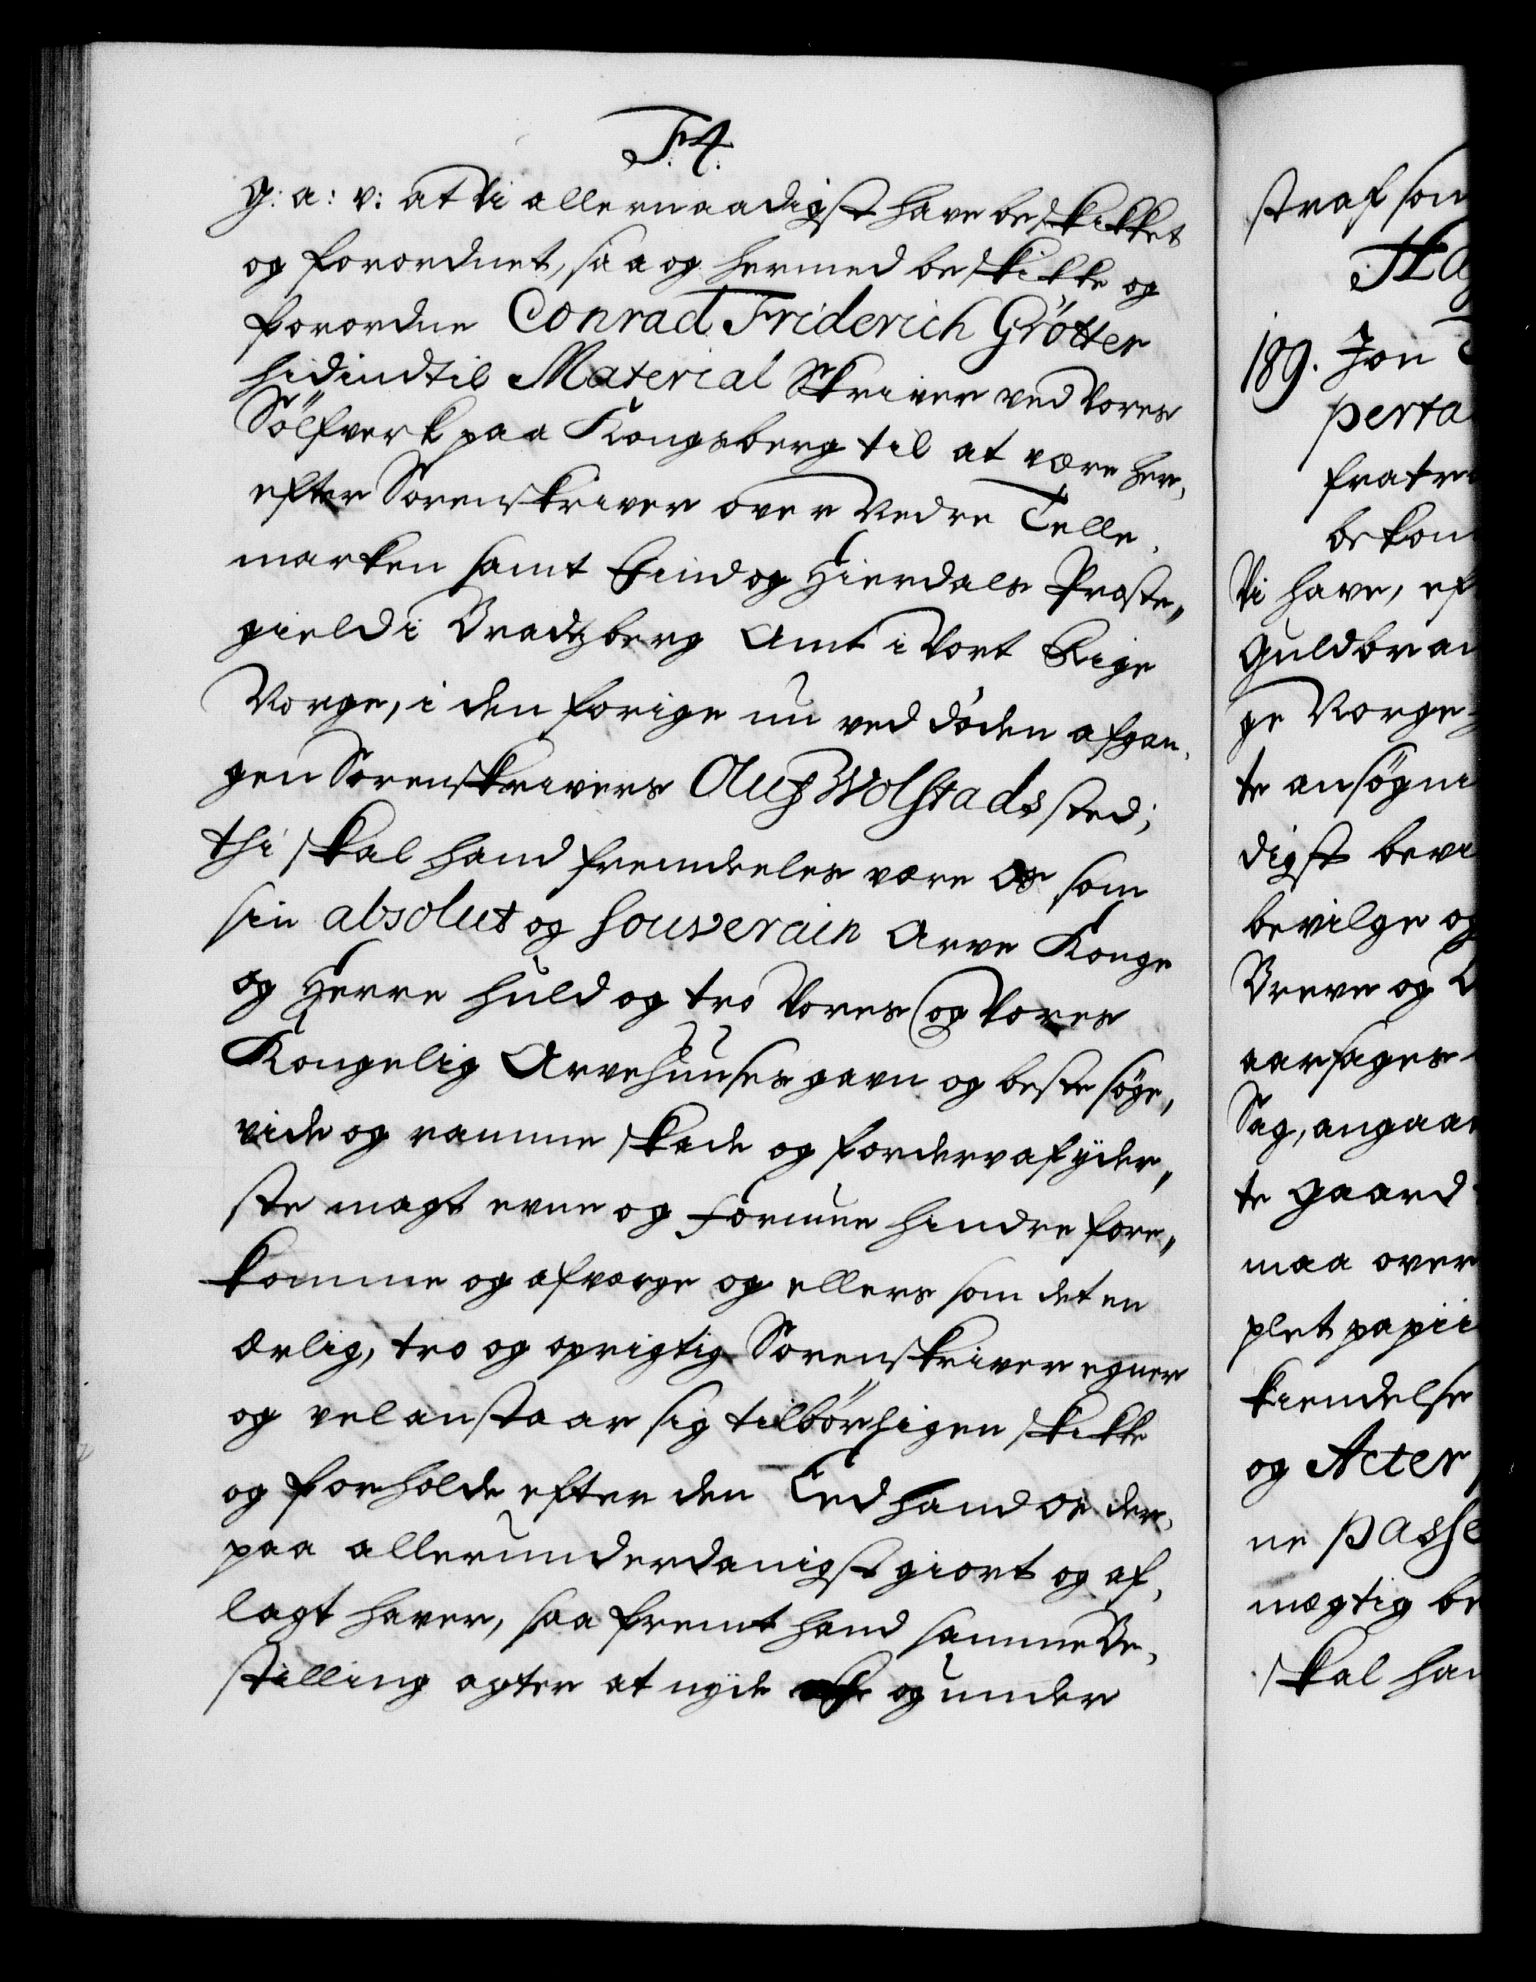 F: 4.
g: a: v: at Vi allernaadigst have beskikket
og forordnet, saa og hermed beskikke og
forordne Conrad Friderich Grötter
hidindtil Material Skriver ved Vores
Sölfverk paa Kongsberg til at være her,
efter Sorenskriver over Nedre Telle,
marken samt Hind og Hierdals Præste„
gield i Bradtzberg Amt i Vort Rige
Norge, i den forige nu ved döden afgan,
gen Sorenskrivers Oluf Wolstads sted;
thi skal hand fremdeeles være Os som
sin absolut og souverain Arve Konge
og Herre huld og tro Vores og Vores
Kongelig Arvehuuses gavn og beste söge,
vide og ramme skade og fordervaf yder„
ste magt evne og Formue hindre fore„
komme og afværge og ellers som det en
ærlig, tro og oprigtig Sorenskriver egner
og vel anstaar sig tilbörligen skikke
og forholde efter den Eed hand Os der,
paa allerunderdanigst giort og af,
lagt haver, saa fremt hand samme Be,
stilling agter at nyde og under
straf som
189. Jon
perta
fratr
bekom
Vi have, ef
Guldbran
ge Norge
te ansögni
digst bevi
bevilge og
Breve og
aarsages
Sag, angaae
te gaard
maa over
plet papii
kiendelse
og Acter
ne passe
mægtig be
skal han